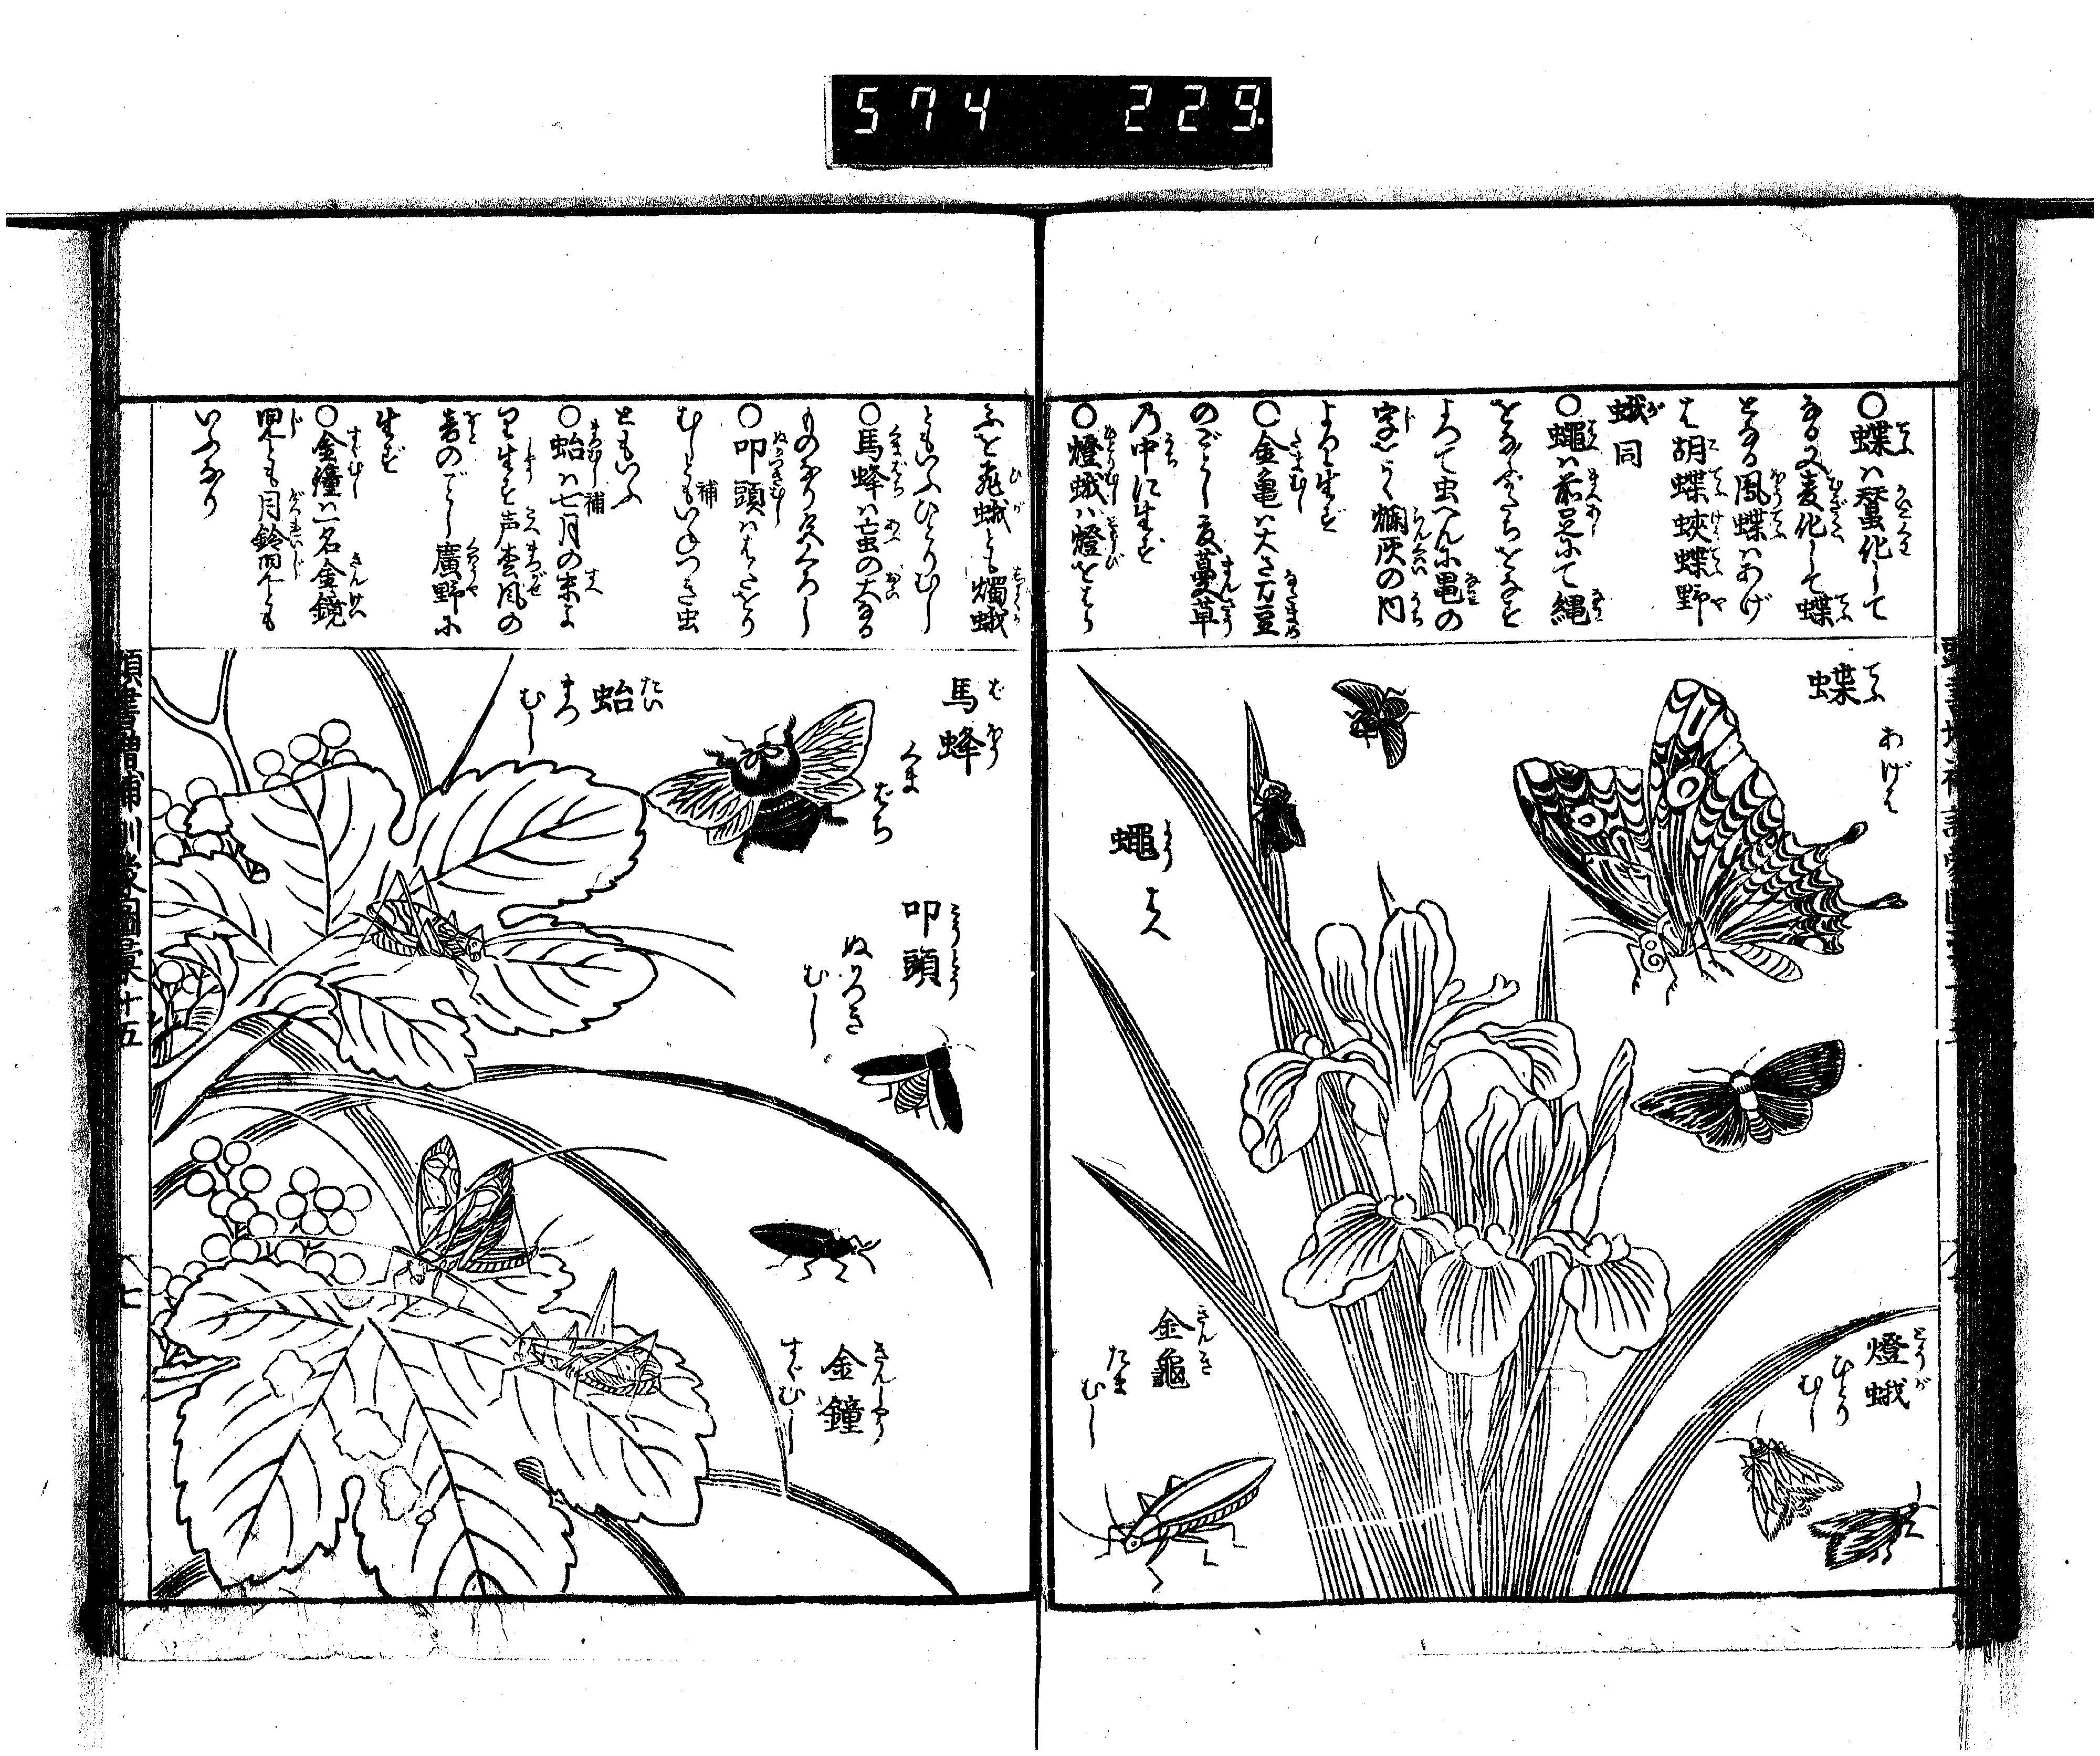 574 229.
○蝶ハ蝅化して
なる又麦化して蝶
となる鳳蝶ハあげ
は胡蝶蛺蝶野
蛾同
○蠅ハ前足にて縄
をなふかたちをなす
よつて虫へんに黽の
字をかく爛灰の内
より生ず
○金亀ハ大さ刀豆
のごとし夏蔓草
乃中に生ず
○燈蛾ハ燈をはら
ふを飛蛾とも燭蛾
ともいふひとりむし
○馬蜂ハ䖟の大なる
ものなり
○叩頭ハ
むしともいねつき虫
ともいふ
○蛤ハ七月の末よ
り生ず声松風の
音のごとし廣野に
生ず
○金鐘ハ一名金鏡
児とも月鈴児とも
いふなり
蝶 てふ
あげは
蠅 よう
はへ
金龜 きんき
たまむし
燈蛾 とうが
ひとりむし
馬蜂 ばほう
くまばち
叩頭 こうとう
ぬかつきむし
蛤 たい
まつむし
金鐘 きんしやう
すゞむし
頭書増補訓蒙圖彙十五